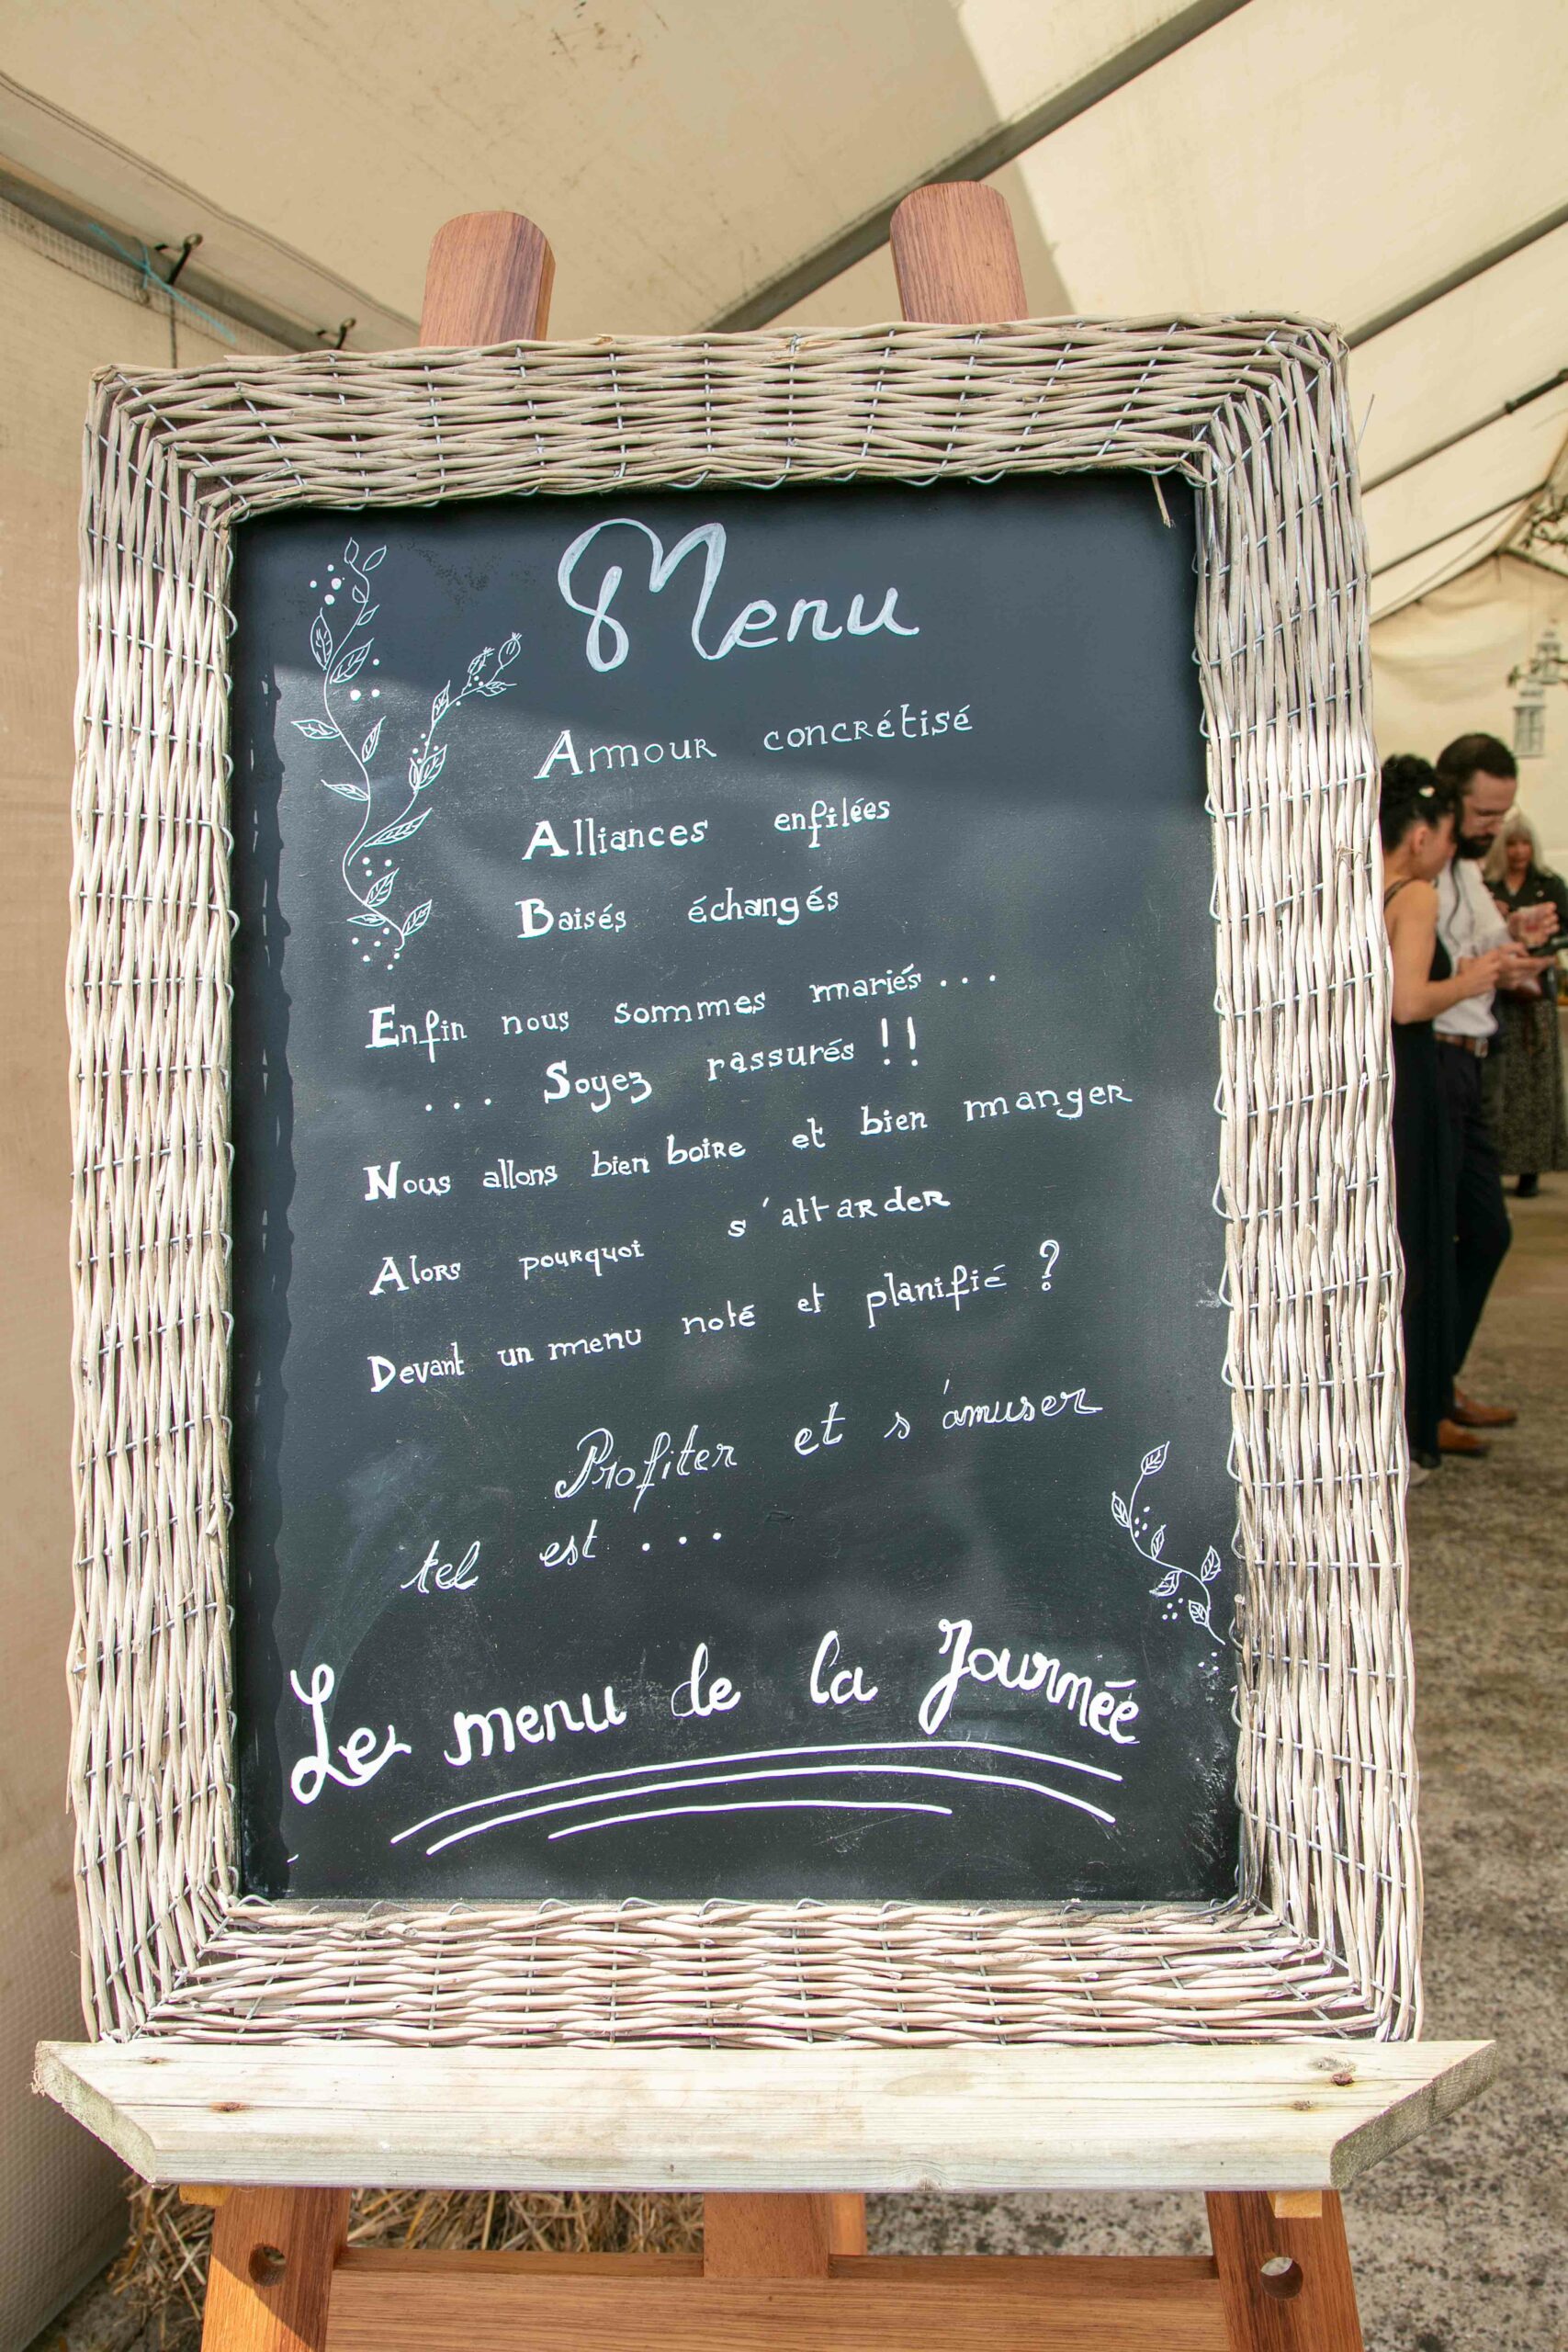 Menu
Amour concrétisé
Alliances enfilées
Baisés échangés
Enfin nous sommes mariés...
... Soyez rassurés !!
Nous allons bien boire et bien manger
Alors pourquoi s'attarder
Devant un menu noté et planifié ?
Profiter et s'amuser
tel est...
Le menu de la Journée